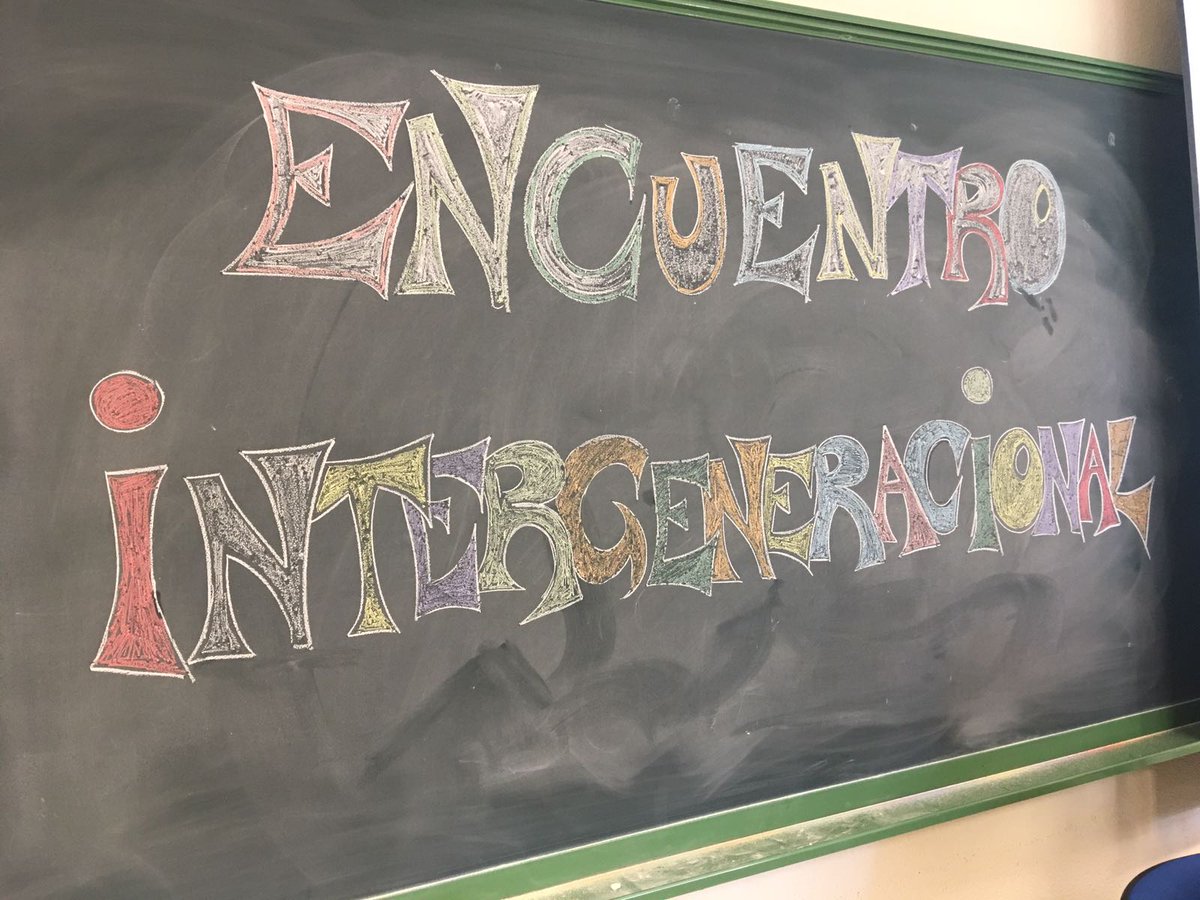 ENCUENTRO
iNTERGENERACiONAL